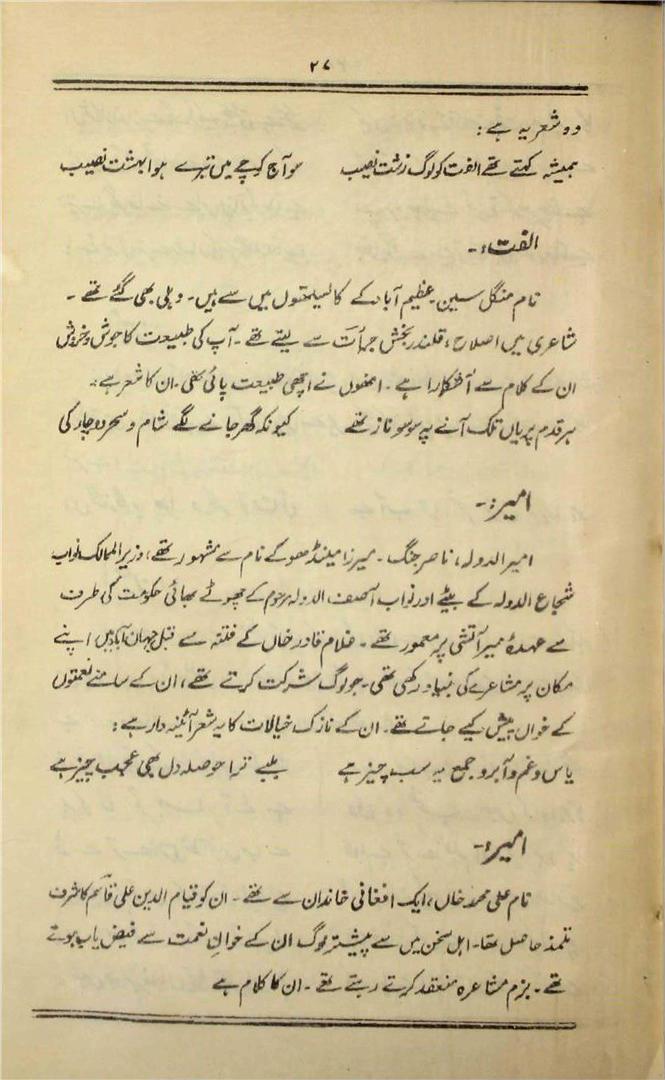 ۲۷
وہ شعر یہ ہے :
ہمیشہ کہتے تھے الفت کو لوگ زشت نصیب سو آج کوچے میں تیرے ہوا بہشت نصیب
الفت :-
نام منگل سین۔ عظیم آباد کے کالیستھوں میں سے ہیں۔ دہلی بھی گئے تھے ۔
شاعری میں اصلاح، قلندر بخش جرأت سے لیتے تھے ۔ آپ کی طبیعت کا جوش و خروش
ان کے کلام سے آشکارا ہے ۔ انھوں نے اچھی طبیعت پائی تھی ۔ ان کا شعر ہے :
ہر قدم پر یاں تلک آنے پہ سو سو ناز تھے کیونکہ گھر جانے لگے شام و سحر دو چار کی
امیر :-
امیر الدولہ، ناصر جنگ ۔ میرزا مینڈھو کے نام سے مشہور تھے، وزیر الممالک نواب
شجاع الدولہ کے بیٹے اور نواب آصف الدولہ مرحوم کے چھوٹے بھائی حکومت کی طرف
سے عہدۂ میر آتشی پر معمور تھے ۔ غلام قادر خاں کے فتنہ سے قبل جہان آباد میں اپنے
مکان پر مشاعرے کی بنیاد رکھی تھی ۔ جو لوگ شرکت کرتے تھے، ان کے سامنے نعمتوں
کے خوان پیش کیے جاتے تھے ۔ ان کے نازک خیالات کا یہ شعر آئینہ دار ہے :
یاس و غم و آبرو جمیع یہ سب چیز ہے بلبے ترا حوصلہ دل بھی عجب چیز ہے
امیر :-
نام علی محمد خاں، ایک افغانی خاندان سے تھے ۔ ان کو قیام الدین علی قائم کا شرف
تلمذ حاصل تھا۔ اہل سخن میں سے بیشتر لوگ ان کے خوانِ نعمت سے فیض یاب ہوتے
تھے ۔ بزم مشاعرہ منعقد کرتے رہتے تھے ۔ ان کا کلام ہے